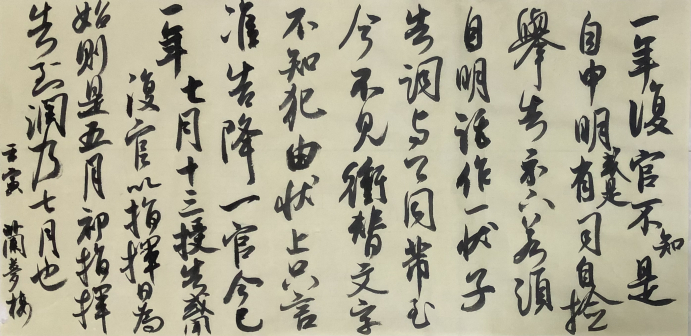 一年復官不知是
自申明或是有司自檢
舉告示下若須
自明請作一狀子
告詞与公同帶至
今不見衝替文字
不知犯由狀上只言
准告降一官今已
一年七月十三授告蔡
復官以指揮日為
始則是五月初指揮
告到潤乃七月也
壬寅